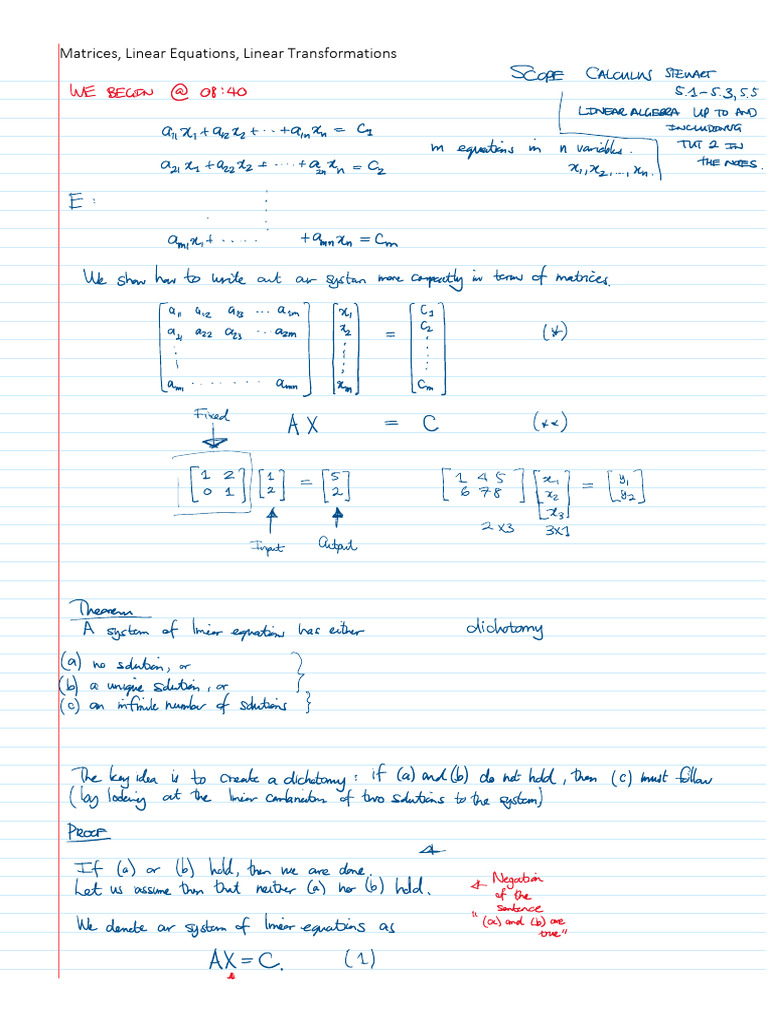 Matrices, Linear Equations, Linear Transformations
SCOPE CALCULUS STEWART
5.1-5.3, 5.5
LINEAR ALGEBRA UP TO AND
INCLUDING
TUT 2 IN
THE NOTES.
WE BEGIN @ 08:40
a₁₁x₁+a₁₂x₂+···+a₁ₙxₙ = C₁
a₂₁x₁+a₂₂x₂+····+a₂ₙxₙ = C₂
m equations in n variables.
x₁,x₂,...,xₙ.
E:
aₘ₁x₁+ ····· +aₘₙxₙ=Cₘ
We show how to write out our system more compactly in terms of matrices.
[a₁₁ a₁₂ a₁₃ ··· a₁ₘ] [x₁] [C₁]
[a₂₁ a₂₂ a₂₃ ··· a₂ₘ] [x₂] = [C₂] (*)
[aₘ ······· aₘₙ] [xₘ] [Cₘ]
Fixed
AX = C (**)
[1 2] [1] = [5] [1 4 5] [x₁] = [y₁]
[0 1] [2] [2] [6 7 8] [x₂] [y₂]
[x₃]
2×3 3×1
Input Output
Theorem
A system of linear equations has either dichotomy
(a) no solution, or
(b) a unique solution, or
(c) an infinite number of solutions
The key idea is to create a dichotomy: if (a) and (b) do not hold, then (c) must follow
(by looking at the linear combination of two solutions to the system)
PROOF
If (a) or (b) hold, then we are done.
Let us assume then that neither (a) nor (b) hold.
Negation
of the
sentence
"(a) and (b) are
true"
We denote our system of linear equations as
AX = C. (1)